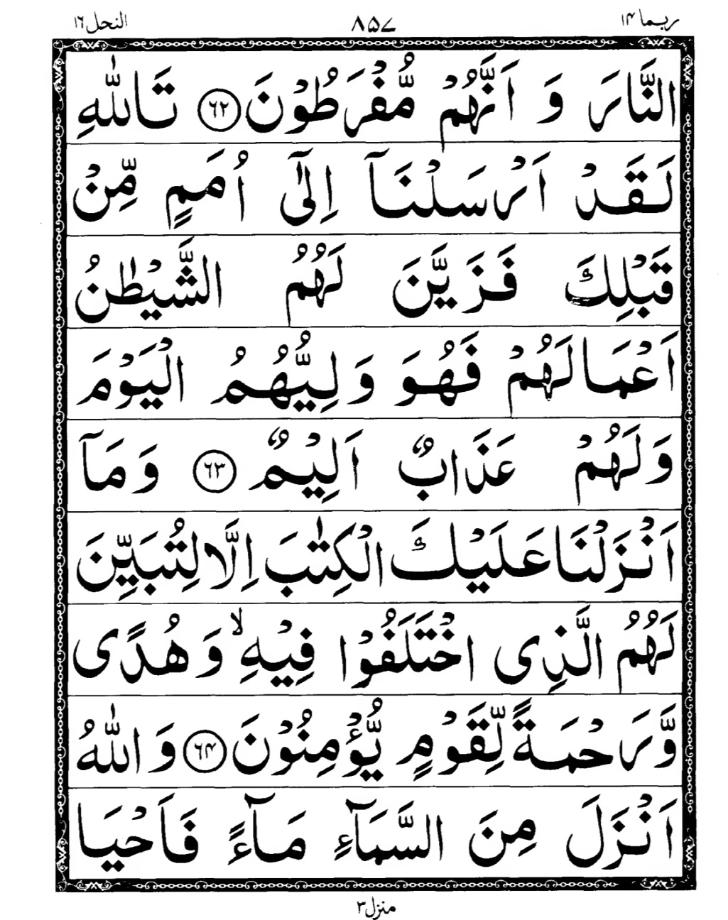 ربما ١٤ ٨٥٧ النحل ١٦
النَّارَ وَ اَنَّهُمْ مُّفْرَطُوْنَ ﴿٦٢﴾ تَاللّٰهِ
لَقَدْ اَرْسَلْنَاۤ اِلٰۤى اُمَمٍ مِّنْ
قَبْلِكَ فَزَيَّنَ لَهُمُ الشَّيْطٰنُ
اَعْمَالَهُمْ فَهُوَ وَلِيُّهُمُ الْيَوْمَ
وَلَهُمْ عَذَابٌ اَلِيْمٌ ﴿٦٣﴾ وَمَاۤ
اَنْزَلْنَا عَلَيْكَ الْكِتٰبَ اِلَّا لِتُبَيِّنَ
لَهُمُ الَّذِى اخْتَلَفُوْا فِيْهِ ۙ وَ هُدًى
وَّرَحْمَةً لِّقَوْمٍ يُّؤْمِنُوْنَ ﴿٦٤﴾ وَ اللّٰهُ
اَنْزَلَ مِنَ السَّمَآءِ مَآءً فَاَحْيَا
منزل ٣